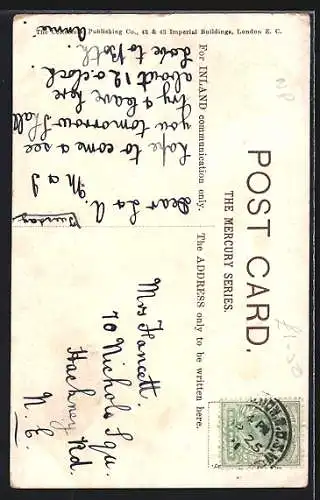 POST CARD.
THE MERCURY SERIES.
For INLAND communication only.
The ADDRESS only to be written here.
Publishing Co., 42 & 43 Imperial Buildings, London E. C.
Sunday
Dear
M & J
hope to come & see
you tomorrow Shall
try & leave here
about 12 o.clock
Love to Both
Annie
Mrs Fancett.
70 Nichols Squ.
Hackney Rd.
N. E
NP
£1-50